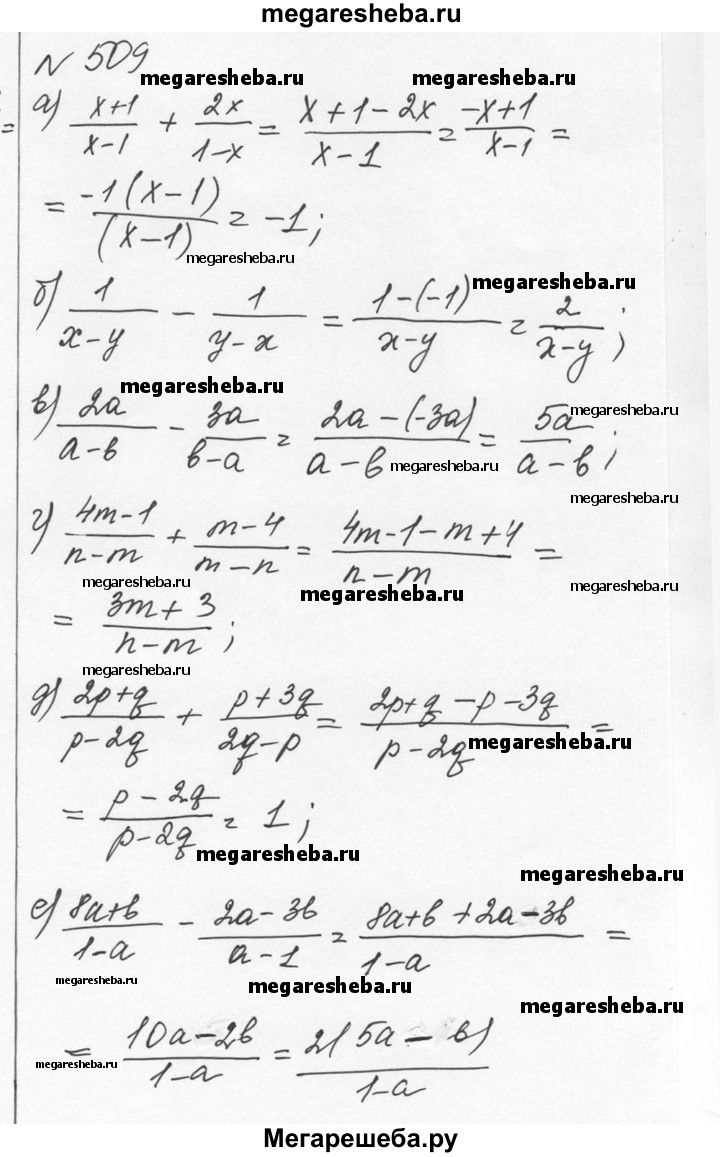 megaresheba.ru
N 509
megaresheba.ru megaresheba.ru
а) (x+1)/(x-1) + 2x/(1-x) = (x+1-2x)/(x-1) = (-x+1)/(x-1) =
= -1(x-1)/(x-1) = -1;
megaresheba.ru
megaresheba.ru
б) 1/(x-y) - 1/(y-x) = (1-(-1))/(x-y) = 2/(x-y);
megaresheba.ru
megaresheba.ru
в) 2a/(a-b) - 3a/(b-a) = (2a-(-3a))/(a-b) = 5a/(a-b);
megaresheba.ru
megaresheba.ru
г) (4m-1)/(n-m) + (m-4)/(m-n) = (4m-1-m+4)/(n-m) =
megaresheba.ru megaresheba.ru megaresheba.ru
= (3m+3)/(n-m);
megaresheba.ru
д) (2p+q)/(p-2q) + (p+3q)/(2q-p) = (2p+q-p-3q)/(p-2q) =
megaresheba.ru
= (p-2q)/(p-2q) = 1;
megaresheba.ru
megaresheba.ru
е) (8a+b)/(1-a) - (2a-3b)/(a-1) = (8a+b+2a-3b)/(1-a) =
megaresheba.ru megaresheba.ru
megaresheba.ru
= (10a-2b)/(1-a) = 2(5a-b)/(1-a)
megaresheba.ru
Мегарешеба.ру